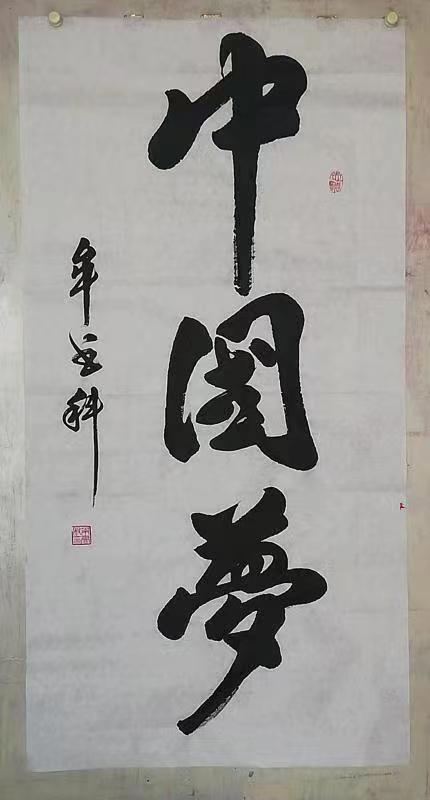 中國夢
牟 科